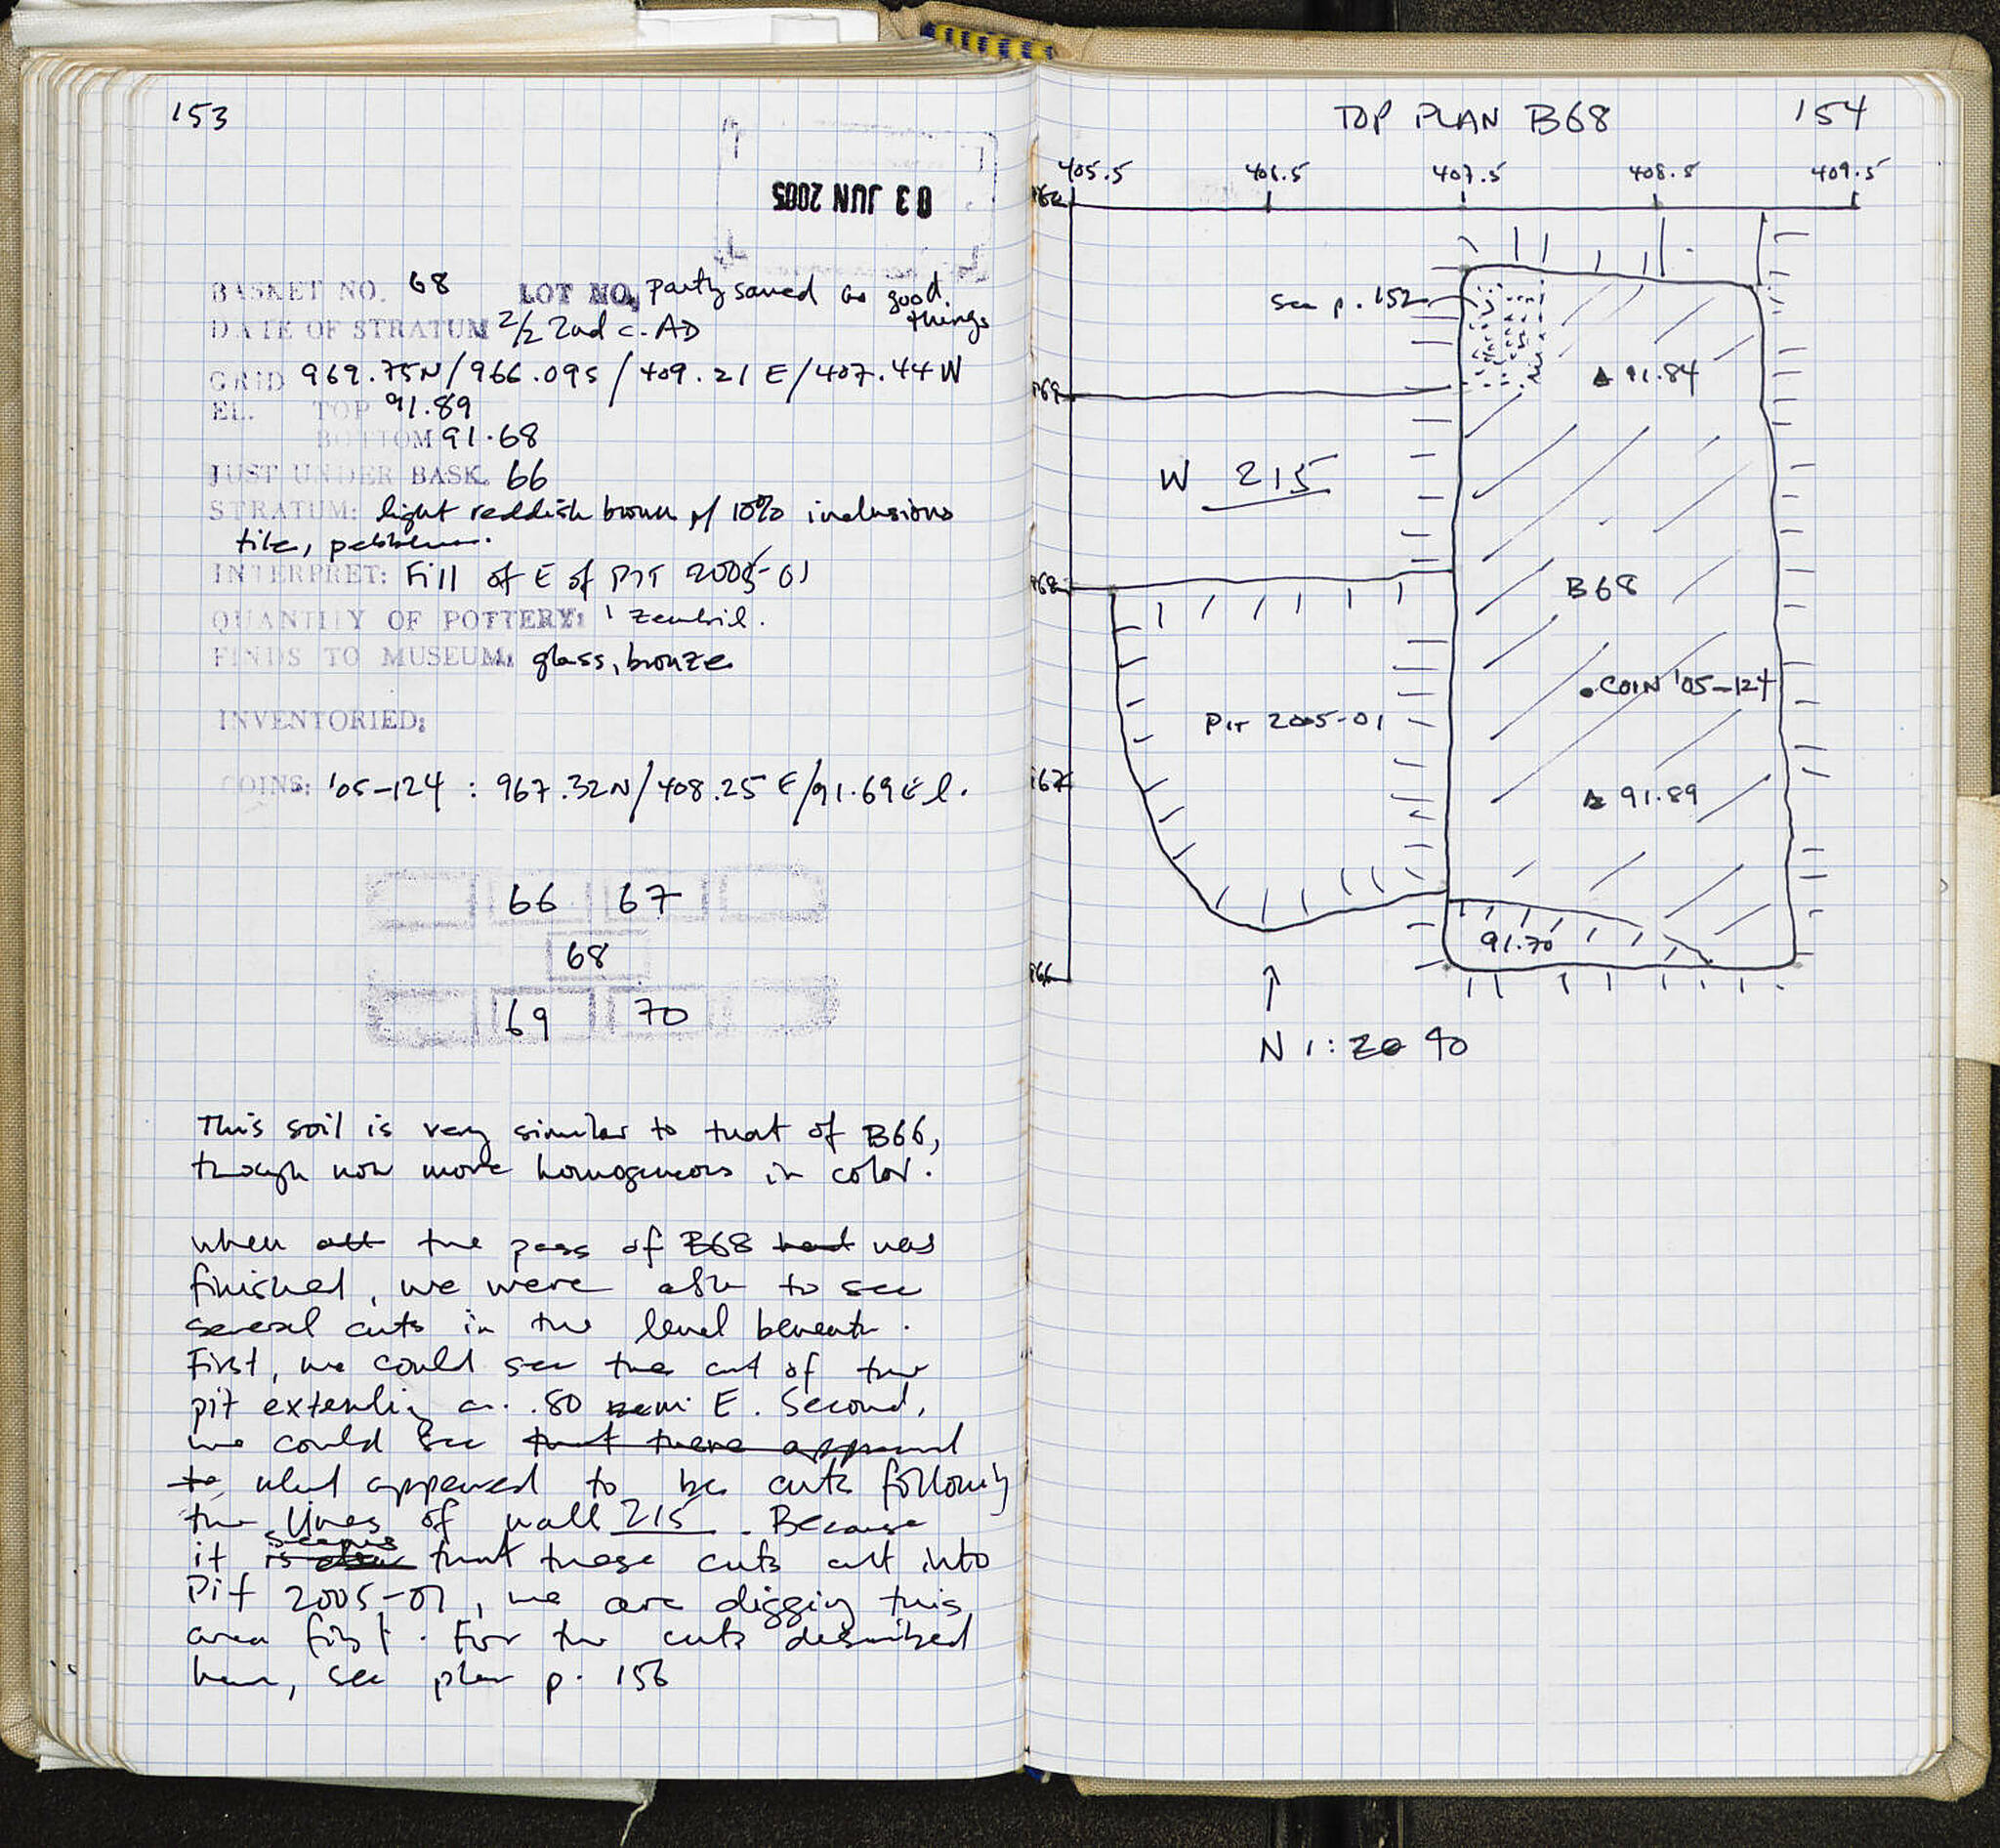 153
03 JUN 2005
BASKET NO. 68 LOT NO. Partly saved as good
things
DATE OF STRATUM 2/2 2nd c. AD
GRID 969.75N/966.09S/409.21E/407.44W
EL. TOP 91.89
BOTTOM 91.68
JUST UNDER BASK. 66
STRATUM: light reddish brown w/ 10% inclusions
tile, pebbles.
INTERPRET: Fill of E of PIT 2005-01
QUANTITY OF POTTERY: 1 zembil.
FINDS TO MUSEUM: glass, bronze
INVENTORIED:
COINS: '05-124 : 967.32N/408.25E/91.69El.
66 67
68
69 70
This soil is very similar to that of B66,
though now more homogeneous in color.
When all the pass of B68 had was
finished, we were able to see
several cuts in the level beneath.
First, we could see the cut of the
pit extending ca. .80 m E. Second,
we could see that there appeared
to what appeared to be cuts following
the lines of wall 215. Because
seems
it is clear that these cuts cut into
Pit 2005-01, we are digging this
area first. For the cuts described
here, see plan p. 156
TOP PLAN B68 154
405.5 406.5 407.5 408.5 409.5
see p. 152
91.84
969
W 215
968
B68
COIN '05-124
PIT 2005-01
967
91.89
91.70
966
N 1:20 40